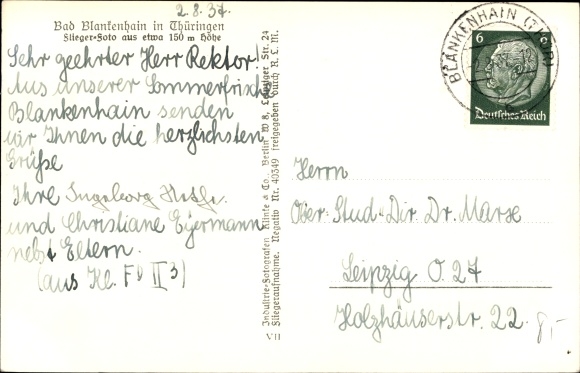 2.8.37.
Bad Blankenhain in Thüringen
Flieger-Foto aus etwa 150 m Höhe
Sehr geehrter Herr Rektor!
Aus unserer Sommerfrische
Blankenhain senden
wir Ihnen die herzlichsten
Grüße
Ihre Ingeborg
und Christiane Eyermann
nebst Eltern.
(aus Kl. II 3)
Industrie-Fotografen Klinke & Co., Berlin W 8, Leipziger Str. 24
Fliegeraufnahme. Negativ Nr. 40349 freigegeben durch R. L. M.
VII
BLANKENHAIN (THÜR)
6
Deutsches Reich
Herrn
Ober-Stud-Dir. Dr. Marse
Leipzig O. 27
Holzhäuserstr. 22.
8,-